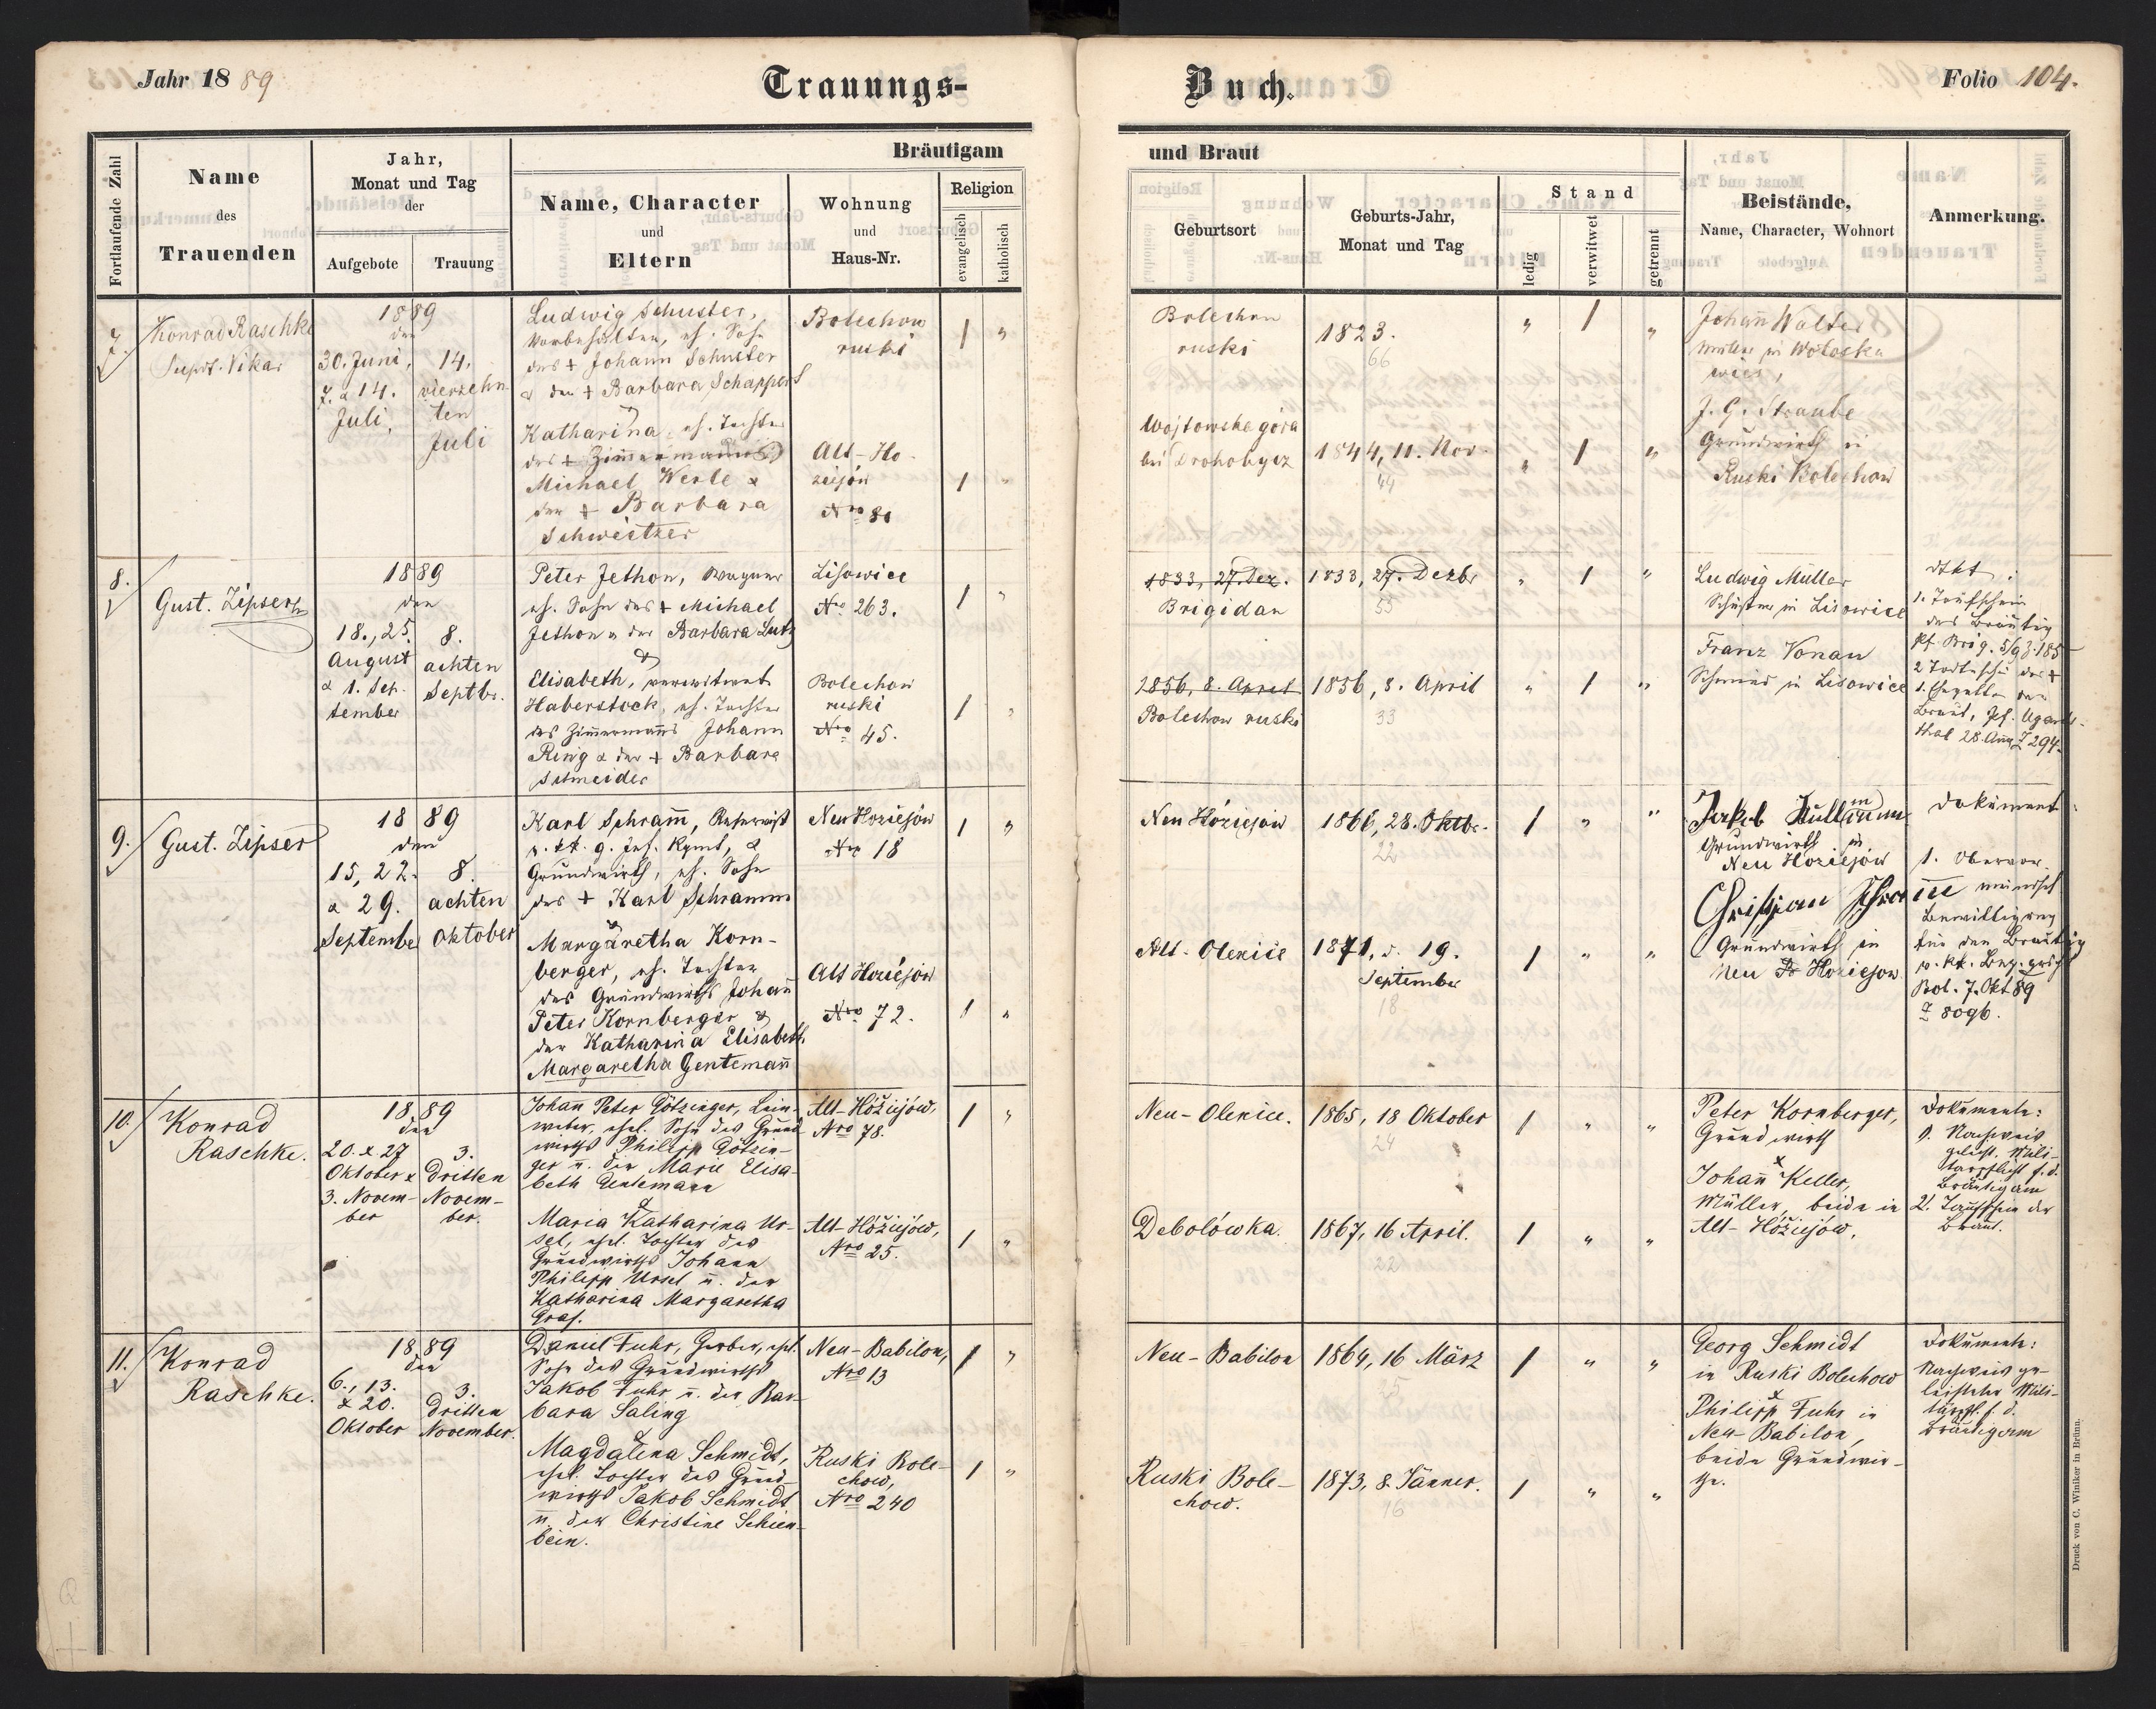 Jahr 1889
Trauungs-
Buch.
Folio 104.
Fortlaufende Zahl
Name
des
Trauenden
Jahr,
Monat und Tag
der
Aufgebote
Trauung
Bräutigam
und Braut
Name, Character
und
Eltern
Wohnung
und
Haus-Nr.
Religion
evangelisch
katholisch
Geburtsort
Geburts-Jahr,
Monat und Tag
Stand
ledig
verwitwet
getrennt
Beistände,
Name, Character, Wohnort
Anmerkung.
7.
Konrad Raschke
Supt. Vikar
1889
den
30. Juni,
7. & 14.
Juli,
14.
vierzehn
ten
Juli
Ludwig Schuster,
eh. Sohn
des + Johann Schuster
& der + Barbara Schappert
&
Katharina, eh. Tochter
des + Zimmermanns
Michael Werle &
der + Barbara
Schweitzer
Bolechow
ruski
Alt-Ho-
ziejów
Nro 80
1 "
1 "
Bolechow
ruski
1823.
66
" 1 "
Wojtowska góra
bei Drohobycz
1844, 11. Nov.
44
" 1 "
Johann Walter
Müller in Woloska
wies,
J. G. Straube
Grundwirth in
Ruski Bolechow
8.
Gust. Zipser
1889
den
18., 25.
August
& 1. Sep-
tember
8.
achten
Septbr.
Peter Jethon, Wagner
eh. Sohn des + Michael
Jethon & der Barbara Lutz
&
Elisabeth, verwitwete
Haberstock, eh. Tochter
des Zimmermanns Johann
Ring & der + Barbara
Schneider
Lisowice
Nro 263.
Bolechow
ruski
Nro 45.
1 "
1 "
1833, 27. Dez.
Brigidau
1833, 27. Dezbr
55
" 1 "
1856, 8. April
Bolechow ruski
1856, 8. April
33
" 1 "
Ludwig Müller
Schuster in Lisowice
Franz Vonau
Schmied in Lisowice
1. Taufschein
des Bräutig
2 Todtesch. des +
1. Ehegatten der
Braut, Pf. Ugarts-
thal 28. Aug Z 294.
9.
Gust. Zipser
1889
den
15, 22.
& 29.
September
8.
achten
Oktober
Karl Schram̄, Reservist
Grundwirth, eh. Sohn
des + Karl Schramm
&
Margaretha Korn-
berger, eh. Tochter
des Grundwirths Johan̄
Peter Kornberger &
der Katharina Elisabeth
Margaretha Genteman̄
Neu Hoziejów
Nro 18
Alt Hoziejów
Nro 72.
1 "
1 "
Neu Hóziejow
1866, 28. Oktbr.
22
1 " "
Alt-Oleksice
1871, d. 19.
September
18
1 " "
Jakob
Grundwirth in
Neu Hoziejów
Christian Schram̄
Grundwirth in
Neu Hoziejow
Dokument:
1. Obervor-
mundsch.
Bewilligung
für den Bräutig
v. kk. Bez. gericht
Bol. 7. Okt 89
Z 8096.
10.
Konrad
Raschke.
1889
den
20. & 27
Oktober &
3. Novem-
ber
3.
dritten
Novem-
ber.
Johan̄ Peter Götzinger, Lein-
weber, ehel. Sohn des Grund-
wirths Philipp Götzin-
ger u. der Marie Elisa-
beth Gentemann
&
Maria Katharina Ur-
sel, ehel. Tochter des
Grundwirths Johann
Philipp Ursel u. der
Katharina Margaretha
Graf.
Alt-Hóžiejów,
Nro 78.
Alt-Hóžiejów,
Nro 25.
1 "
1 "
Neu-Olexice.
1865, 18 Oktober
24
1 " "
Debolówka.
1867, 16 April.
22
1 " "
Peter Kornberger,
Grundwirth
&
Johan̄ Keller,
Müller, beide in
Alt-Hóžiejów.
Dokumente:
1. Nachweis
geleist. Mili-
tärpflicht f. d.
Bräutigam
2. Taufschein der
Braut.
11.
Konrad
Raschke.
1889
den
6., 13.
& 20.
Oktober
3.
dritten
November.
Daniel Fuhr, Gerber, ehel.
Sohn des Grundwirths
Jakob Fuhr u. der Bar-
bara Saling
&
Magdalena Schmidt,
ehel. Tochter des Grund-
wirths Jakob Schmidt
u. der Christine Schien-
bein.
Neu-Babilon,
Nro 13
Ruski Bole-
chow,
Nro 240
1 "
1 "
Neu-Babilon
1864, 16 März
25
1 " "
Ruski Bole-
chow.
1873, 8. Jänner.
16
1 " "
Georg Schmidt
in Ruski Bolechow
&
Philipp Fuhr in
Neu-Babilon,
beide Grundwir-
the.
Dokumente:
Nachweis ge-
leisteter Mili-
tärpfl. f. d.
Bräutigam
Druck von C. Winiker in Brünn.